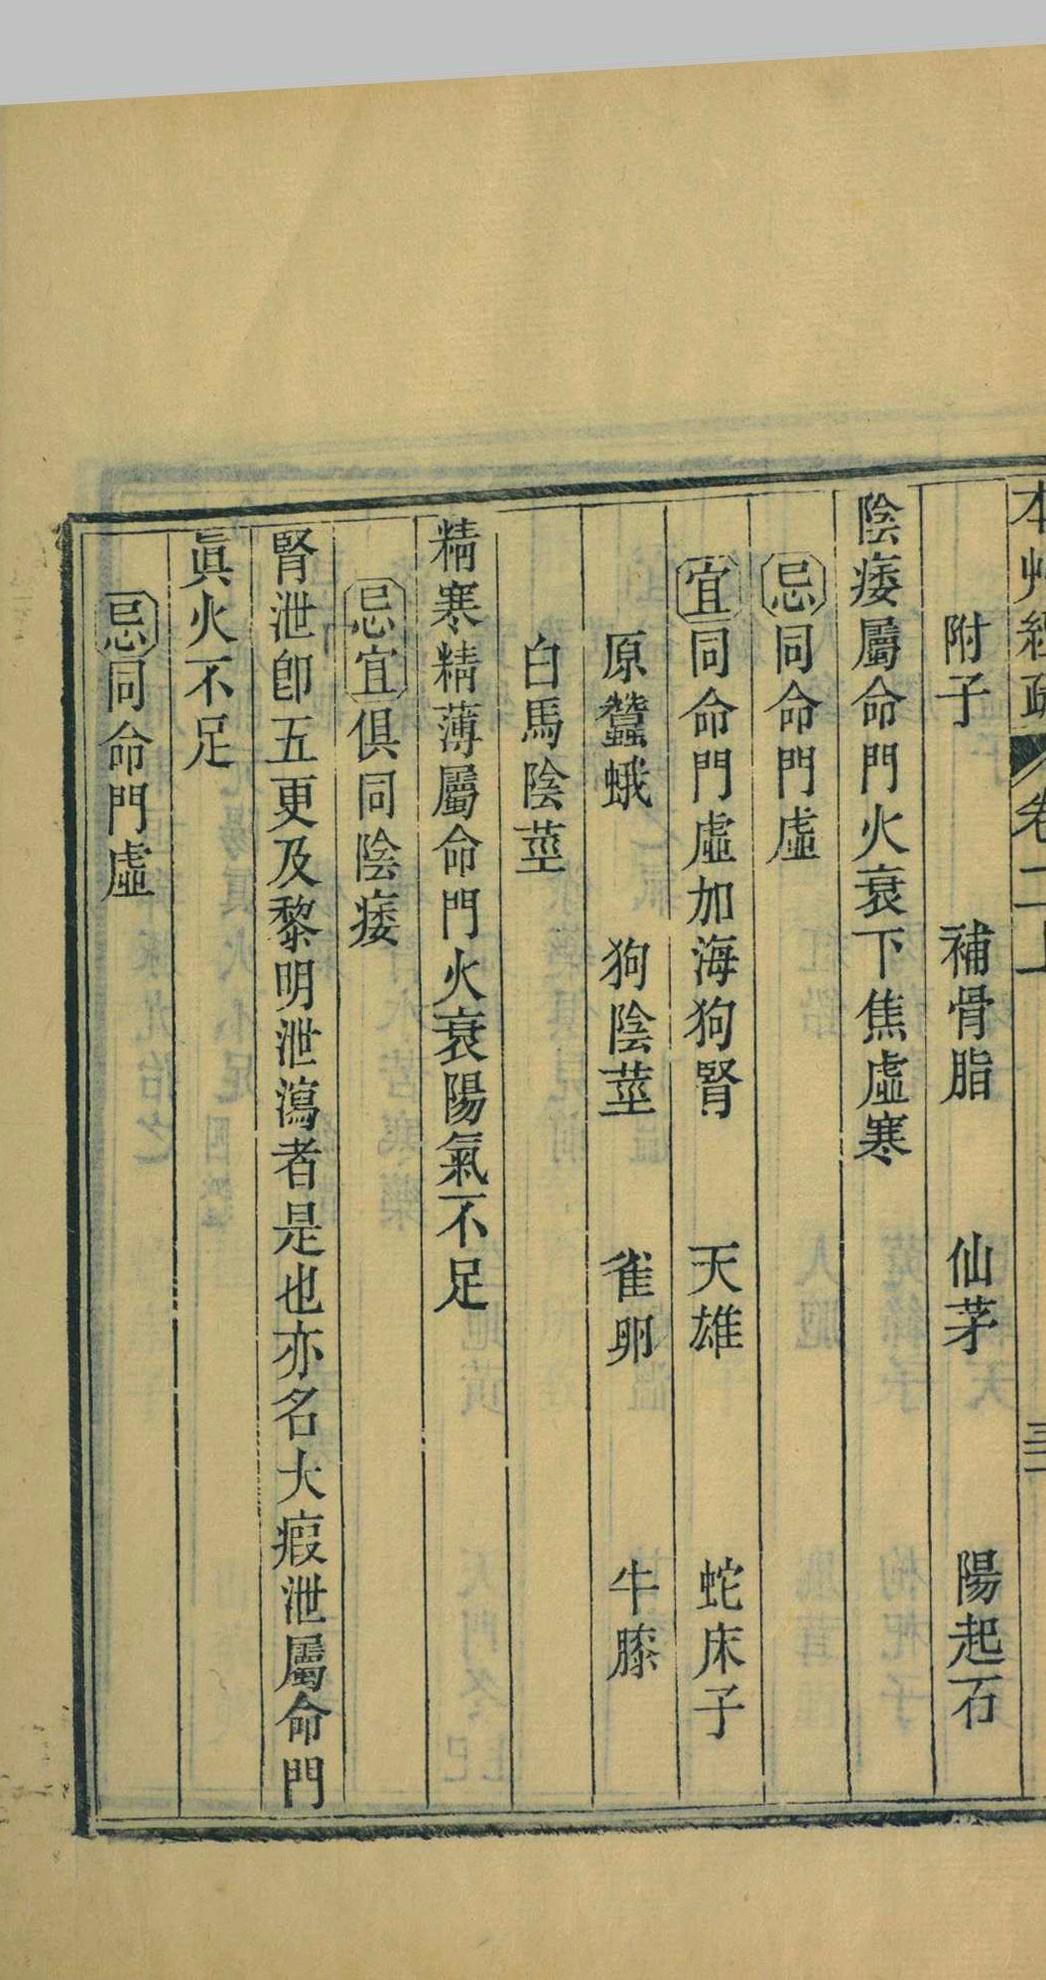 本艸經疏 卷二上 三
附子 補骨脂 仙茅 陽起石
陰痿屬命門火衰下焦虛寒
忌同命門虛
宜同命門虛加海狗腎 天雄 蛇床子
原蠶蛾 狗陰莖 雀卵 牛膝
白馬陰莖
精寒精薄屬命門火衰陽氣不足
忌宜俱同陰痿
腎泄卽五更及黎明泄瀉者是也亦名大瘕泄屬命門
眞火不足
忌同命門虛